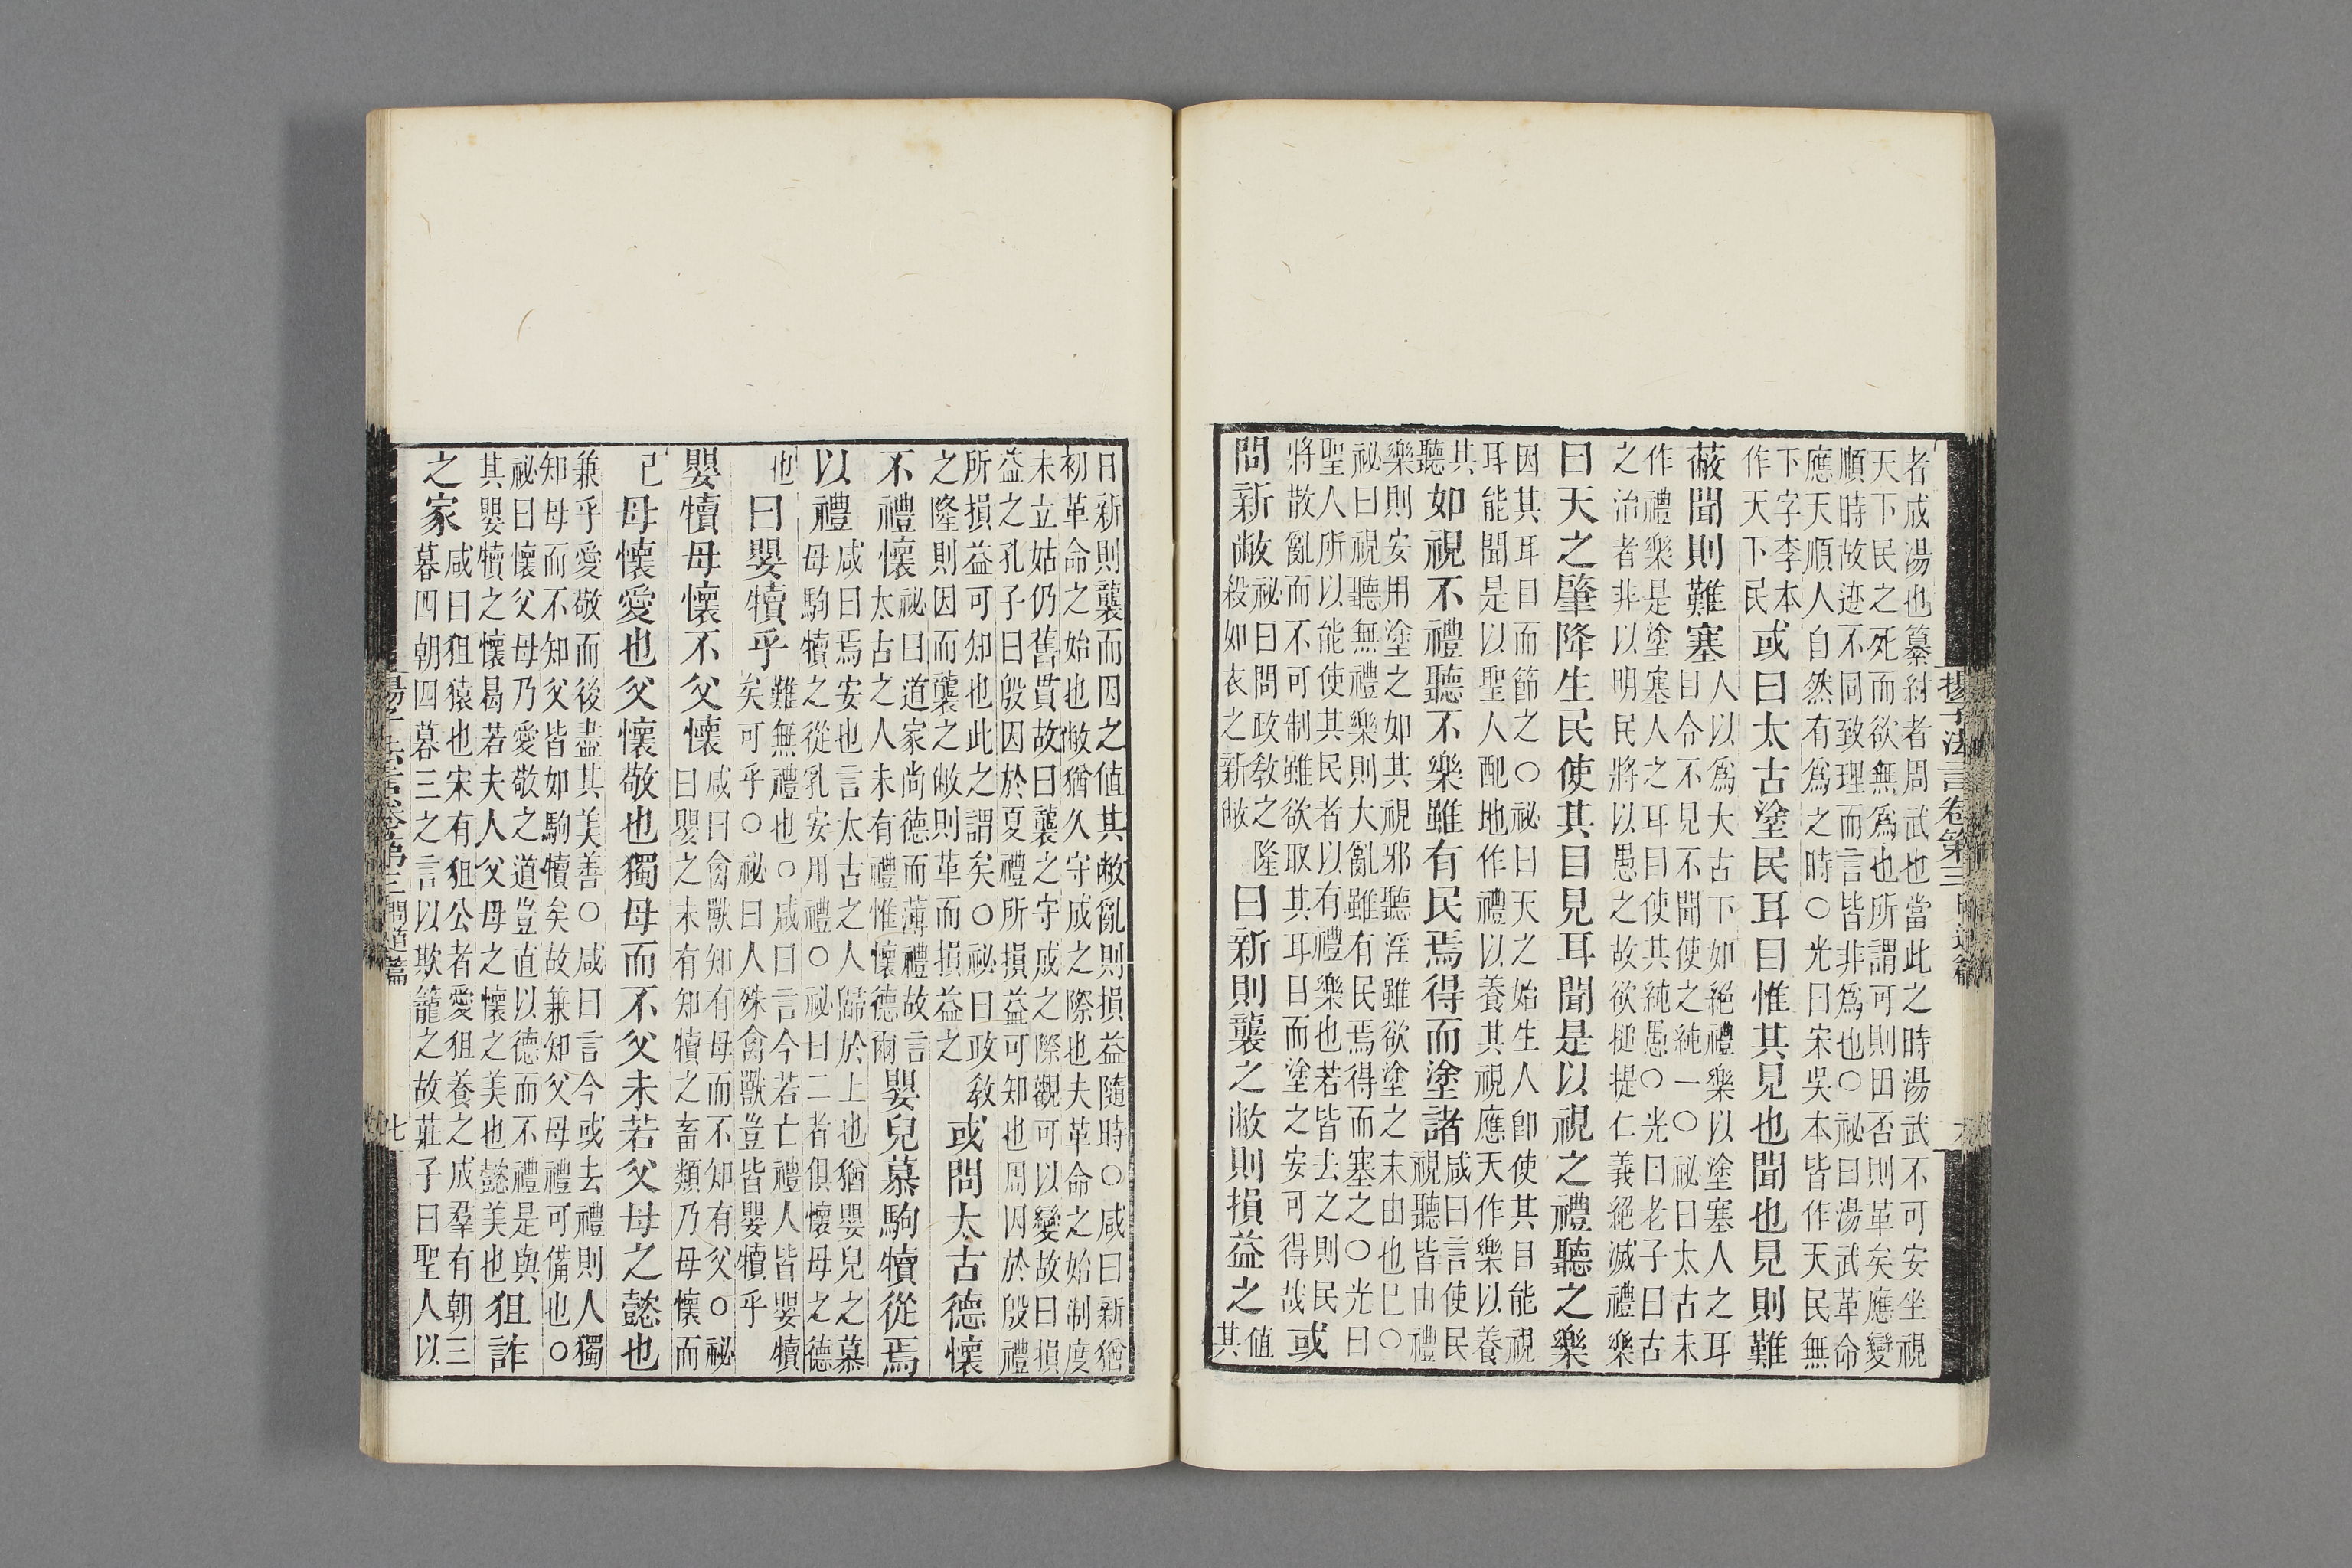 者成湯也纂紂者周武也當此之時湯武不可安坐視
天下民之死而欲無爲也所謂可則因否則革矣應變
順時故迹不同致理而言皆非爲也○祕曰湯武革命
應天順人自然有爲之時○光曰宋吳本皆作天民無
下字李本
作天下民
或曰太古塗民耳目惟其見也聞也見則難
蔽聞則難塞
人以爲大古下如絕禮樂以塗塞人之耳
目令不見不聞使之純一○祕曰太古未
作禮樂是塗塞人之耳目使其純愚○光曰老子曰古
之治者非以明民將以愚之故欲搥提仁義絕滅禮樂
曰天之肇降生民使其目見耳聞是以視之禮聽之樂
因其耳目而節之○祕曰天之始生人即使其目能視
耳能聞是以聖人配地作禮以養其視應天作樂以養
其
聽
如視不禮聽不樂雖有民焉得而塗諸
咸曰言使民
視聽皆由禮
樂則安用塗之如其視邪聽淫雖欲塗之末由也已○
祕曰視聽無禮樂則大亂雖有民焉得而塞之○光曰
聖人所以能使其民者以有禮樂也若皆去之則民
將散亂而不可制雖欲取其耳目而塗之安可得哉
或
問新敝
祕曰問政敎之隆
殺如衣之新敝
曰新則襲之敝則損益之
值
其
揚子法言卷第三 問道篇 六
日新則襲而因之值其敝亂則損益隨時○咸曰新猶
初革命之始也敝猶久守成之際也夫革命之始制度
未立姑仍舊貫故曰襲之守成之際觀可以變故曰損
益之孔子曰殷因於夏禮所損益可知也周因於殷禮
所損益可知也此之謂矣○祕曰政敎
之隆則因而襲之敝則革而損益之
或問太古德懷
不禮懷
祕曰道家尚德而薄禮故言
太古之人未有禮惟懷德爾
嬰兒慕駒犢從焉
以禮
咸曰焉安也言太古之人歸於上也猶嬰兒之慕
母駒犢之從乳安用禮○祕曰二者俱懷母之德
也
曰嬰犢乎
難無禮也○咸曰言今若亡禮人皆嬰犢
矣可乎○祕曰人殊禽獸豈皆嬰犢乎
嬰犢母懷不父懷
咸曰禽獸知有母而不知有父○祕
曰嬰之未有知犢之畜類乃母懷而
已
母懷愛也父懷敬也獨母而不父未若父母之懿也
兼乎愛敬而後盡其美善○咸曰言今或去禮則人獨
知母而不知父皆如駒犢矣故兼知父母禮可備也○
祕曰懷父母乃愛敬之道豈直以德而不禮是與
其嬰犢之懷曷若夫人父母之懷之美也懿美也
狙詐
之家
咸曰狙猿也宋有狙公者愛狙養之成羣有朝三
暮四朝四暮三之言以欺籠之故莊子曰聖人以
揚子法言卷第三 問道篇 七